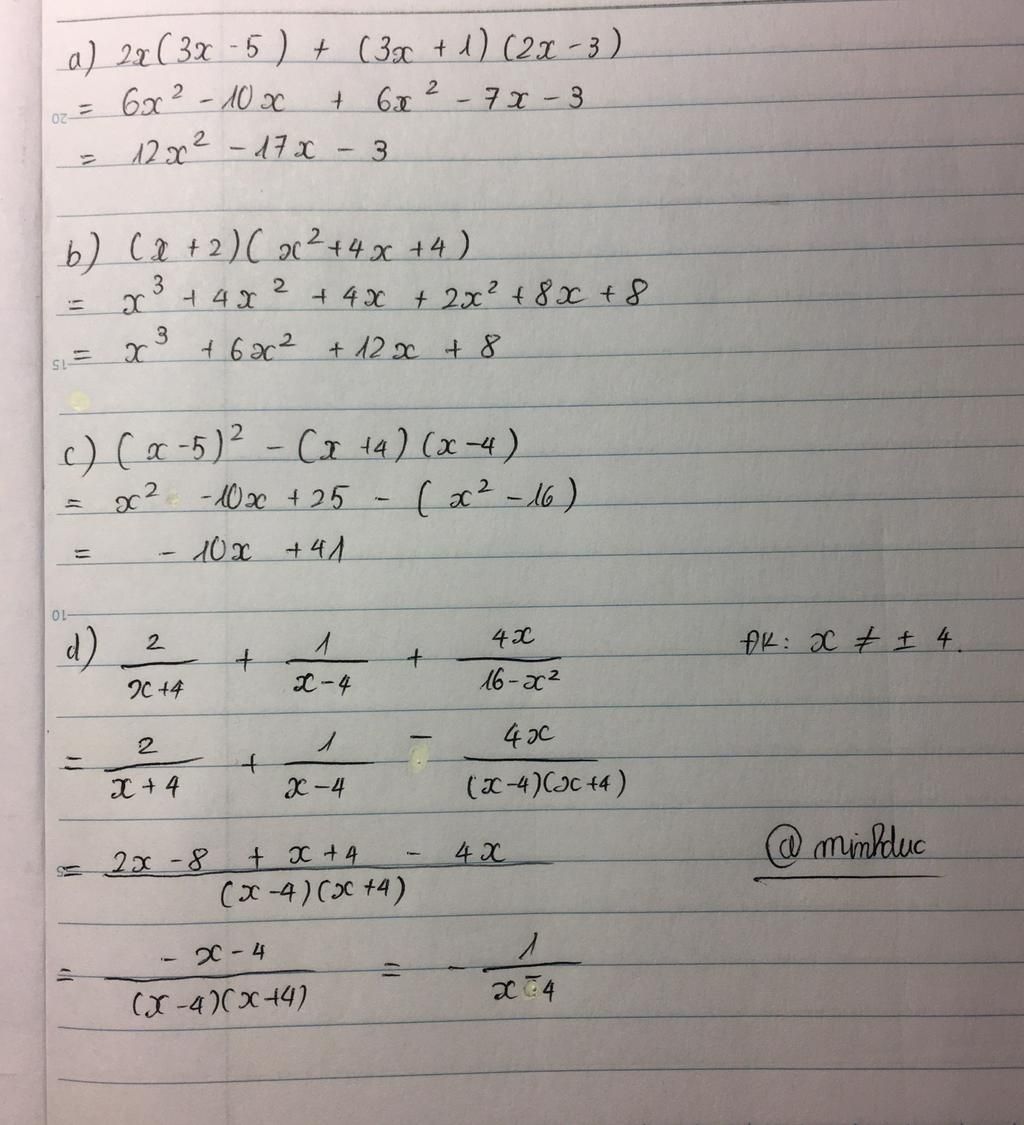 a) 2x(3x - 5) + (3x + 1)(2x - 3)
= 6x² - 10x + 6x² - 7x - 3
= 12x² - 17x - 3
b) (x + 2)(x² + 4x + 4)
= x³ + 4x² + 4x + 2x² + 8x + 8
= x³ + 6x² + 12x + 8
c) (x - 5)² - (x + 4)(x - 4)
= x² - 10x + 25 - (x² - 16)
= - 10x + 41
d) 2/(x+4) + 1/(x-4) + 4x/(16-x²) ĐK: x ≠ ± 4.
= 2/(x+4) + 1/(x-4) - 4x/((x-4)(x+4))
= (2x - 8 + x + 4 - 4x)/((x-4)(x+4))
@minhduc
= (-x-4)/((x-4)(x+4)) = - 1/(x-4)
20
15
10